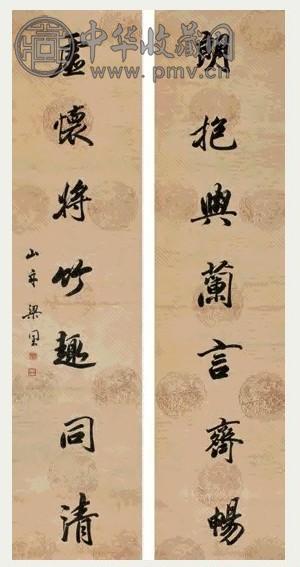 中华收藏网
www.pmv.cn
朗抱與蘭言齊暢
虛懷將竹趣同清
山 梁